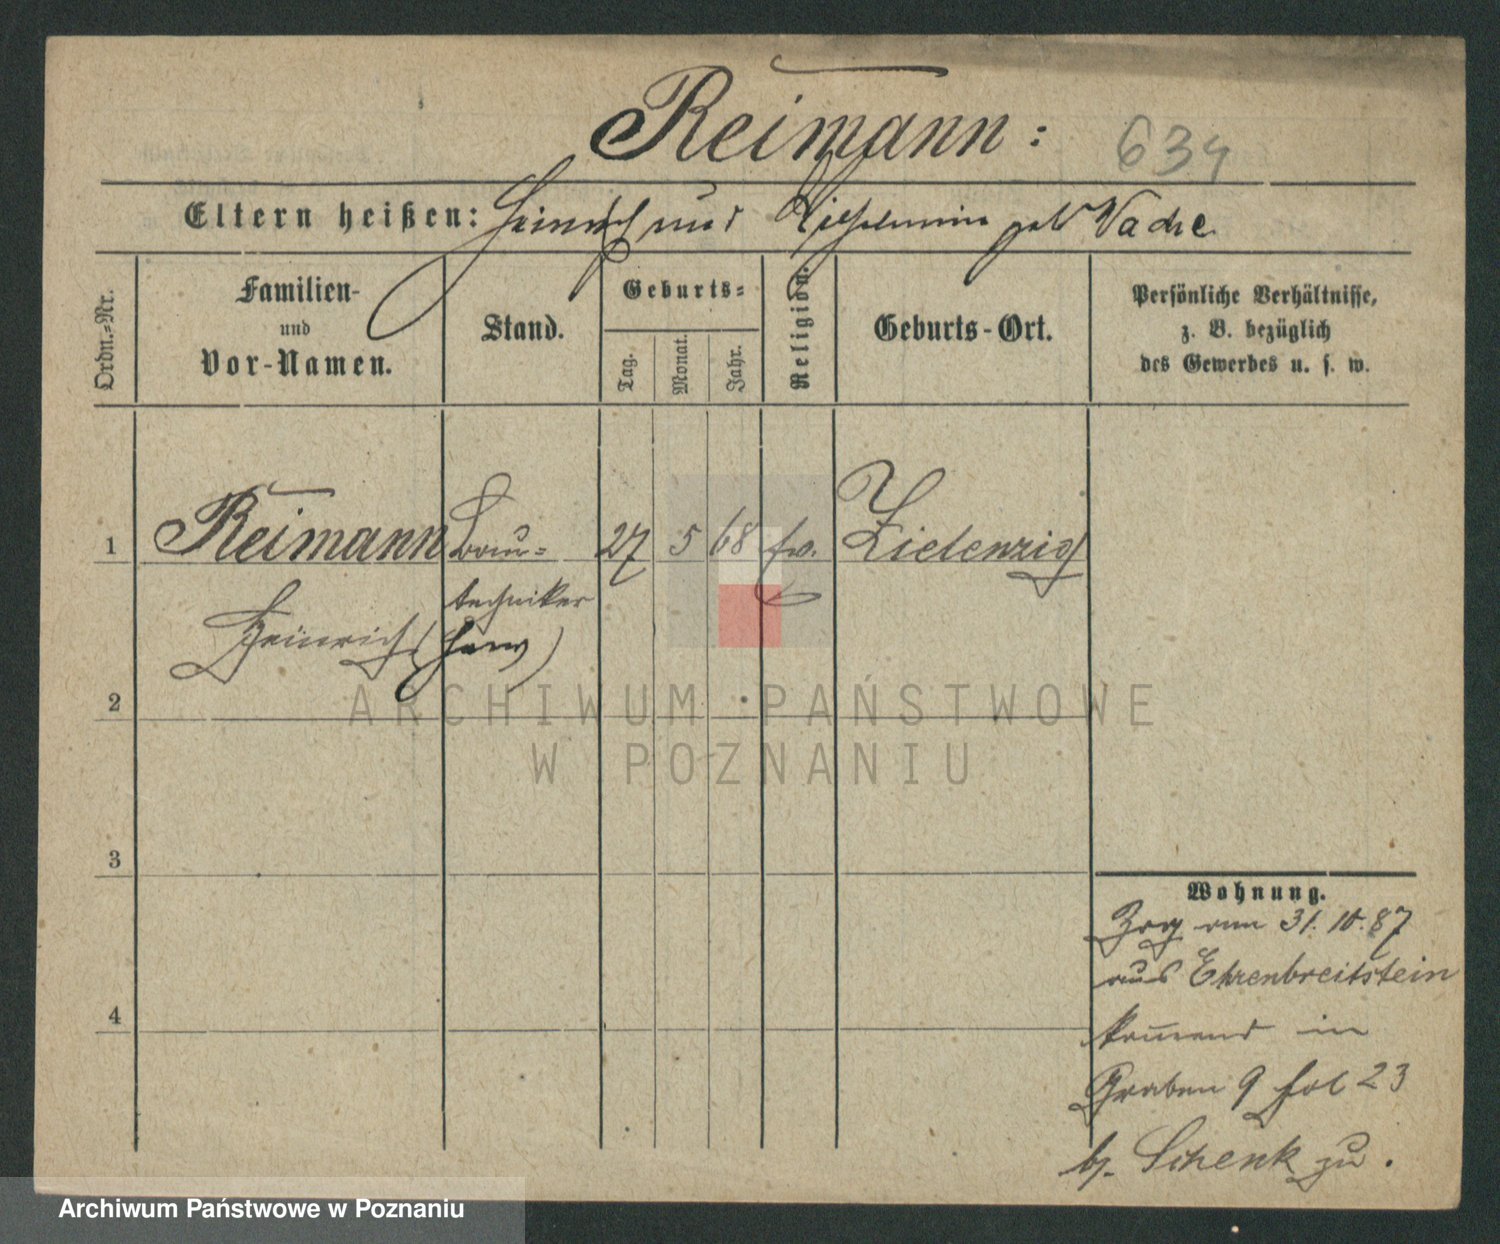 Reimann:
634
Eltern heißen: Heinrich und Wilhelmine geb Vache
Ordn.-Nr.
Familien-
und
Vor-Namen.
Stand.
Geburts-
Tag.
Monat.
Jahr.
Religion.
Geburts-Ort.
Persönliche Verhältnisse,
z. B. bezüglich
des Gewerbes u. s. w.
1 Reimann Bau- 27 5 68 Zielenzig
techniker
Heinrich
2
3
4
Wohnung.
Zog am 31. 10. 87
aus Ehrenbreitstein
komend in
Graben 9 fol 23
b. Schenk zu.
ARCHIWUM PAŃSTWOWE
W POZNANIU
Archiwum Państwowe w Poznaniu